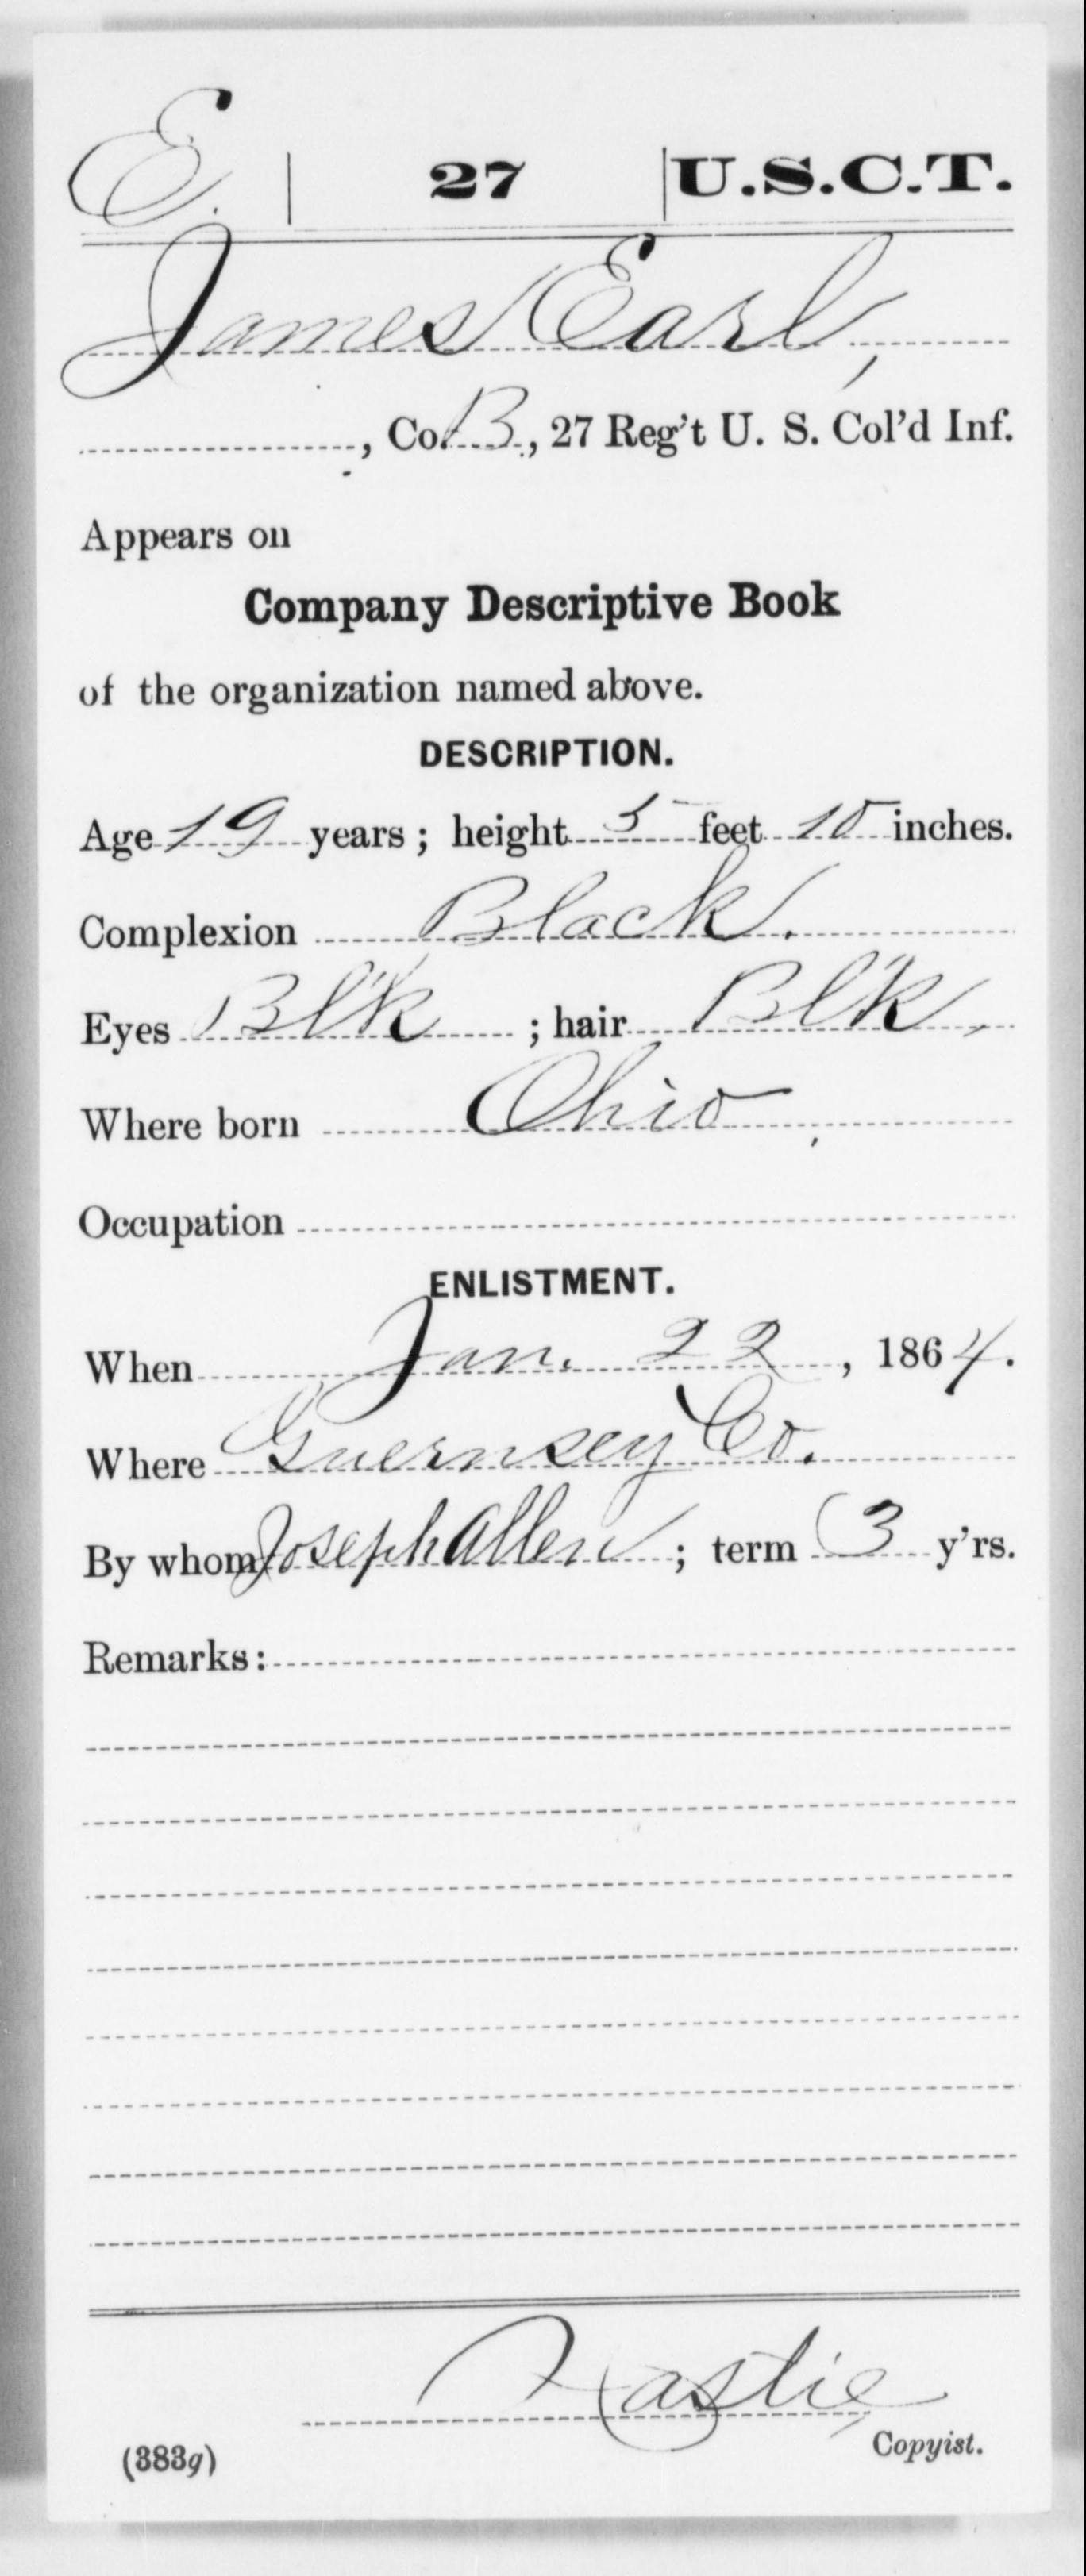 E. | 27 | U.S.C.T.
James Earl,
, Co. B, 27 Reg't U. S. Col'd Inf.
Appears on
Company Descriptive Book
of the organization named above.
DESCRIPTION.
Age 19 years; height 5 feet 10 inches.
Complexion Black.
Eyes Blk ; hair Blk,
Where born Ohio,
Occupation
ENLISTMENT.
When Jan. 22, 1864.
Where Guernsey Co.
By whom Joseph Allen; term 3 y'rs.
Remarks:
Hastie
Copyist.
(383g)